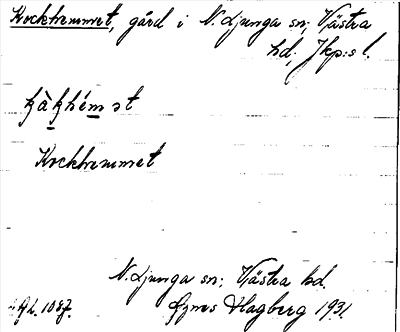 Kockhemmet, gård i N. Ljunga sn; Västra
hd; Jkp:s l.
kàkhém st
Kockhemmet
N. Ljunga sn; Västra hd.
Agnes Hagberg 1931